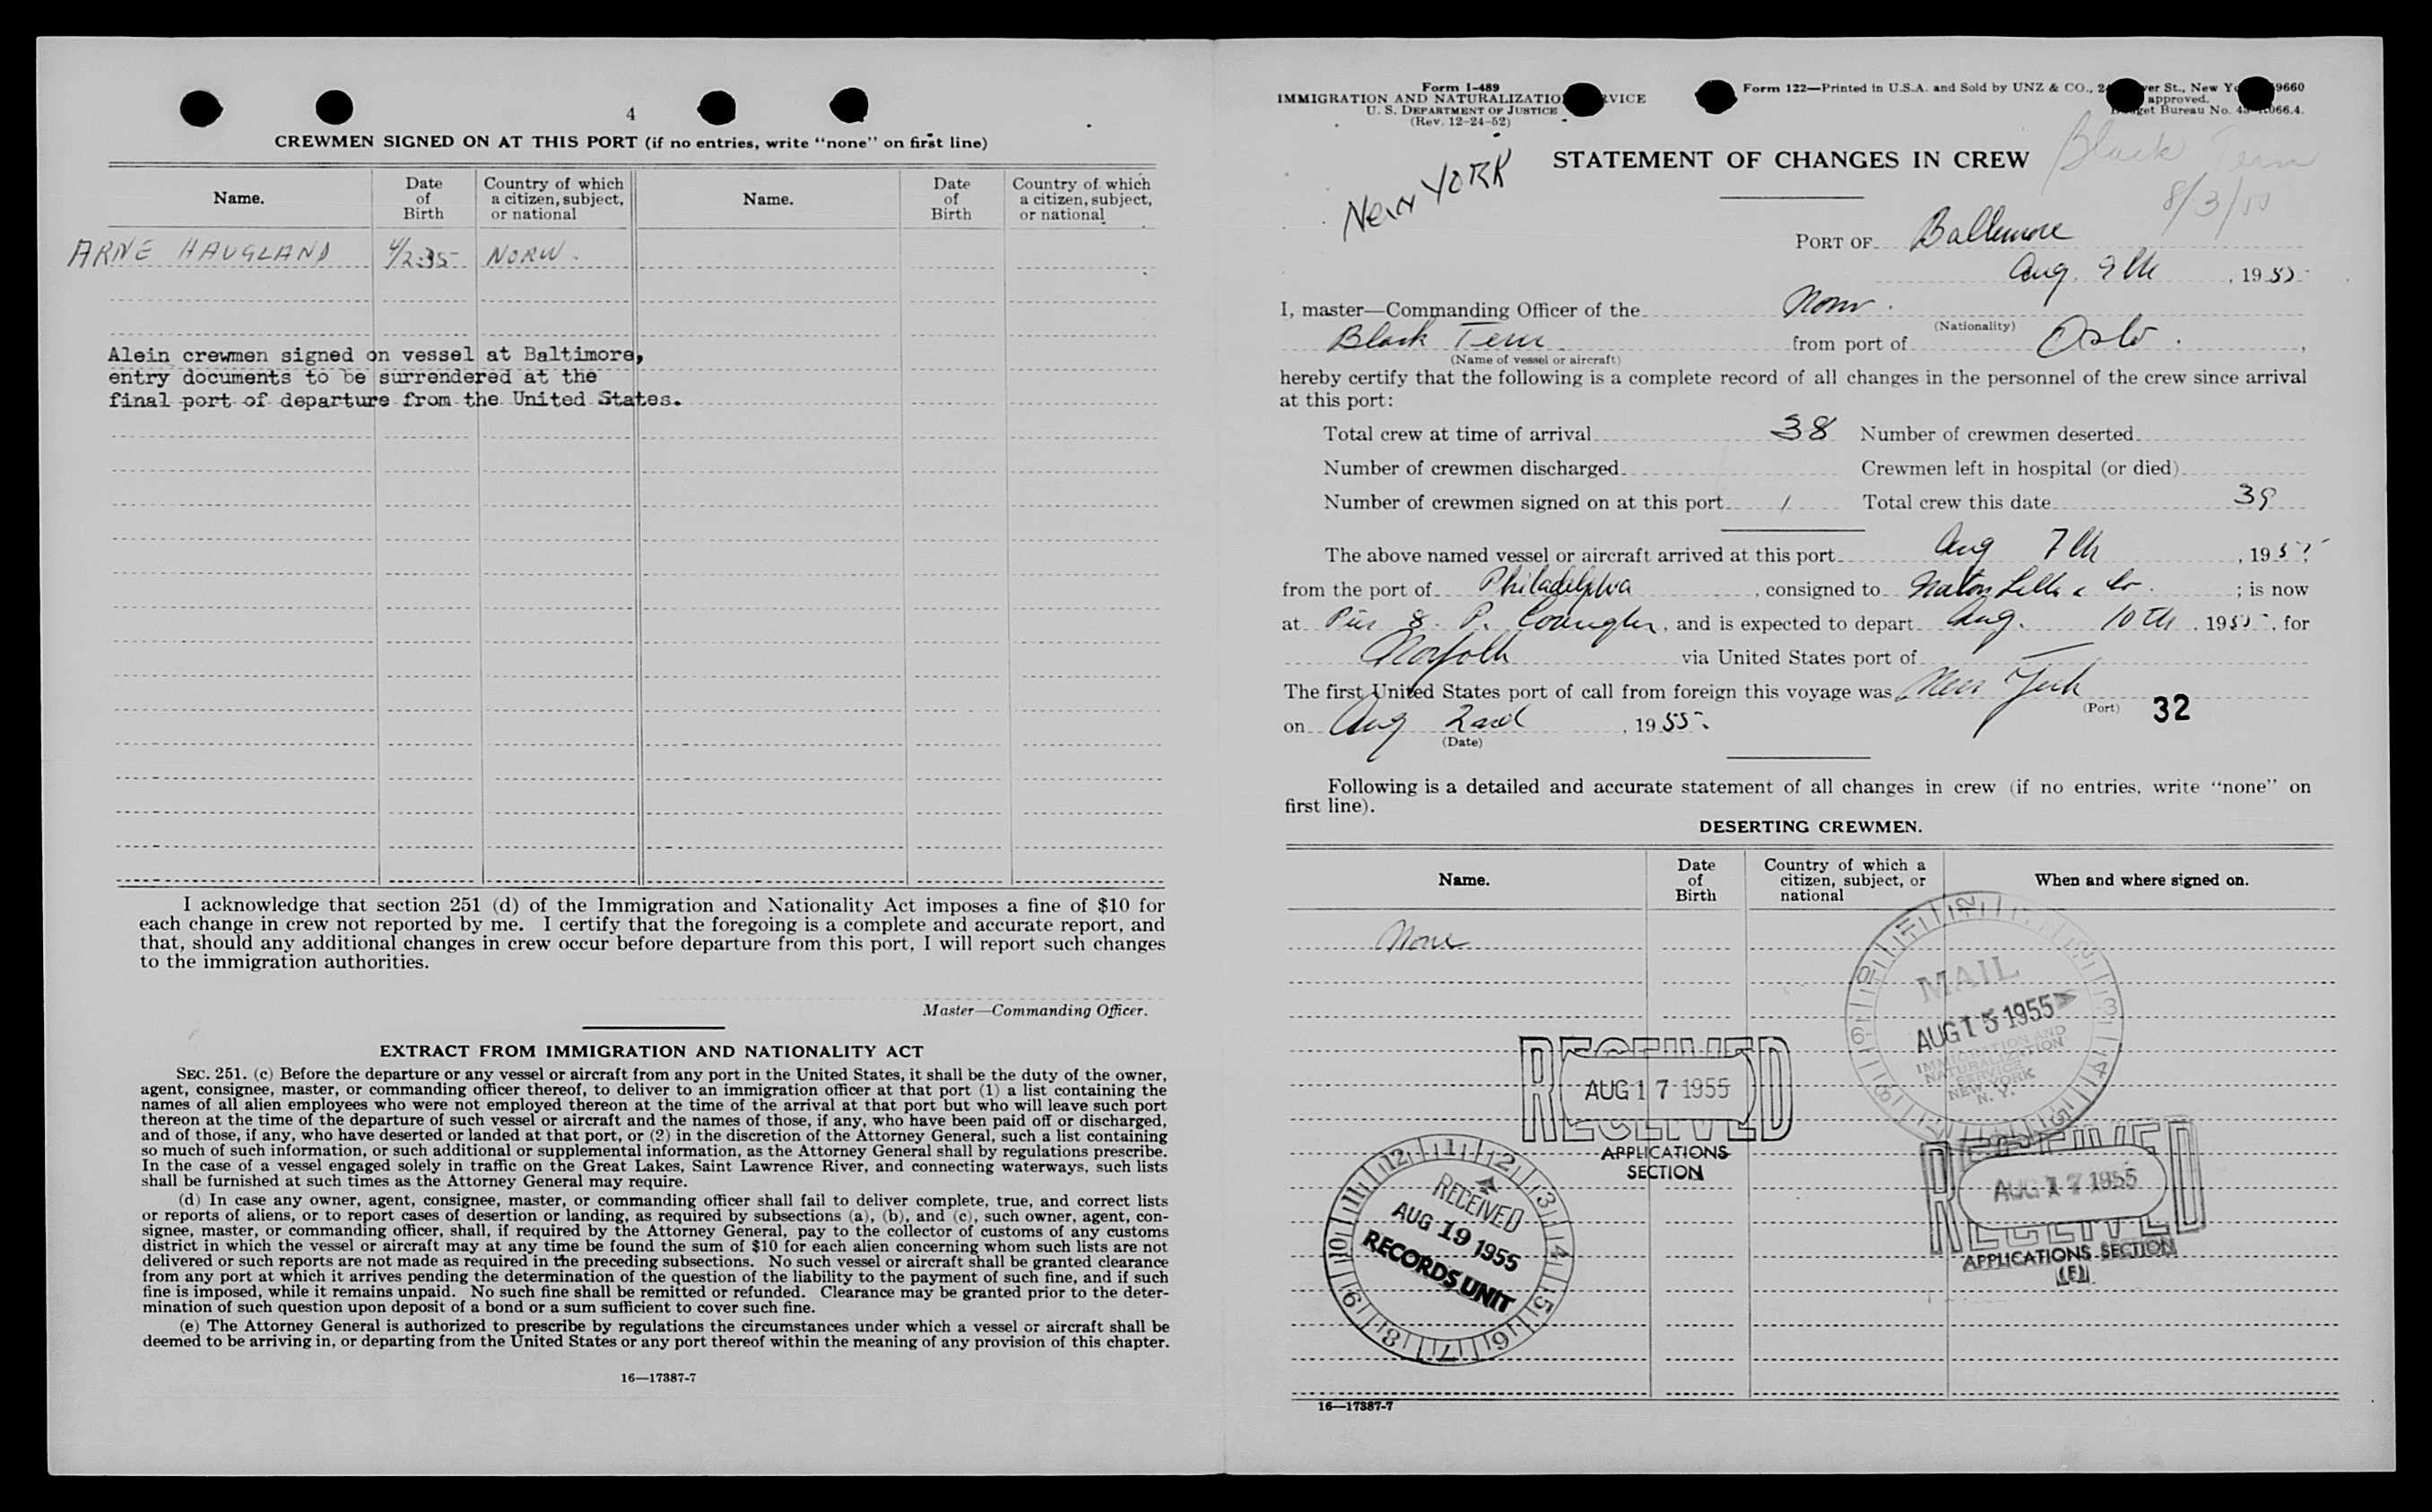 4
CREWMEN SIGNED ON AT THIS PORT (if no entries, write "none" on first line)
Name. Date of Birth Country of which a citizen, subject, or national Name. Date of Birth Country of which a citizen, subject, or national
ARNE HAUGLAND 4/2-35 NORW.
Alein crewmen signed on vessel at Baltimore,
entry documents to be surrendered at the
final port of departure from the United States.
I acknowledge that section 251 (d) of the Immigration and Nationality Act imposes a fine of $10 for
each change in crew not reported by me. I certify that the foregoing is a complete and accurate report, and
that, should any additional changes in crew occur before departure from this port, I will report such changes
to the immigration authorities.
Master—Commanding Officer.
EXTRACT FROM IMMIGRATION AND NATIONALITY ACT
SEC. 251. (c) Before the departure or any vessel or aircraft from any port in the United States, it shall be the duty of the owner,
agent, consignee, master, or commanding officer thereof, to deliver to an immigration officer at that port (1) a list containing the
names of all alien employees who were not employed thereon at the time of the arrival at that port but who will leave such port
thereon at the time of the departure of such vessel or aircraft and the names of those, if any, who have been paid off or discharged,
and of those, if any, who have deserted or landed at that port, or (2) in the discretion of the Attorney General, such a list containing
so much of such information, or such additional or supplemental information, as the Attorney General shall by regulations prescribe.
In the case of a vessel engaged solely in traffic on the Great Lakes, Saint Lawrence River, and connecting waterways, such lists
shall be furnished at such times as the Attorney General may require.
(d) In case any owner, agent, consignee, master, or commanding officer shall fail to deliver complete, true, and correct lists
or reports of aliens, or to report cases of desertion or landing, as required by subsections (a), (b), and (c), such owner, agent, con-
signee, master, or commanding officer, shall, if required by the Attorney General, pay to the collector of customs of any customs
district in which the vessel or aircraft may at any time be found the sum of $10 for each alien concerning whom such lists are not
delivered or such reports are not made as required in the preceding subsections. No such vessel or aircraft shall be granted clearance
from any port at which it arrives pending the determination of the question of the liability to the payment of such fine, and if such
fine is imposed, while it remains unpaid. No such fine shall be remitted or refunded. Clearance may be granted prior to the deter-
mination of such question upon deposit of a bond or a sum sufficient to cover such fine.
(e) The Attorney General is authorized to prescribe by regulations the circumstances under which a vessel or aircraft shall be
deemed to be arriving in, or departing from the United States or any port thereof within the meaning of any provision of this chapter.
16—17387-7
Form I-489
IMMIGRATION AND NATURALIZATIO VICE
U. S. DEPARTMENT OF JUSTICE
(Rev. 12-24-52)
Form 122—Printed in U.S.A. and Sold by UNZ & CO., 2 er St., New Y 9660
approved.
et Bureau No. 066.4.
Black Tern
8/3/55
New YORK
STATEMENT OF CHANGES IN CREW
PORT OF Baltimore
Aug. 9th, 1955
I, master—Commanding Officer of the Norw.
(Nationality)
Black Tern from port of Oslo.,
(Name of vessel or aircraft)
hereby certify that the following is a complete record of all changes in the personnel of the crew since arrival
at this port:
Total crew at time of arrival 38 Number of crewmen deserted
Number of crewmen discharged Crewmen left in hospital (or died)
Number of crewmen signed on at this port 1 Total crew this date 39
The above named vessel or aircraft arrived at this port Aug 7th, 1955
from the port of Philadelphia, consigned to & Co.; is now
at Pier 8. P., and is expected to depart Aug. 10th, 1955, for
Norfolk via United States port of —
The first United States port of call from foreign this voyage was New York
(Port)
32
on Aug 2nd, 1955.
(Date)
Following is a detailed and accurate statement of all changes in crew (if no entries, write "none" on
first line).
DESERTING CREWMEN.
Name. Date of Birth Country of which a citizen, subject, or national When and where signed on.
None
MAIL
AUG 15 1955
IMMIGRATION AND
NATURALIZATION
SERVICE
NEW YORK
N. Y.
RECEIVED
AUG 17 1955
APPLICATIONS
SECTION
RECEIVED
AUG 19 1955
RECORDS UNIT
RECEIVED
AUG 17 1955
APPLICATIONS SECTION
(F)
16—17387-7